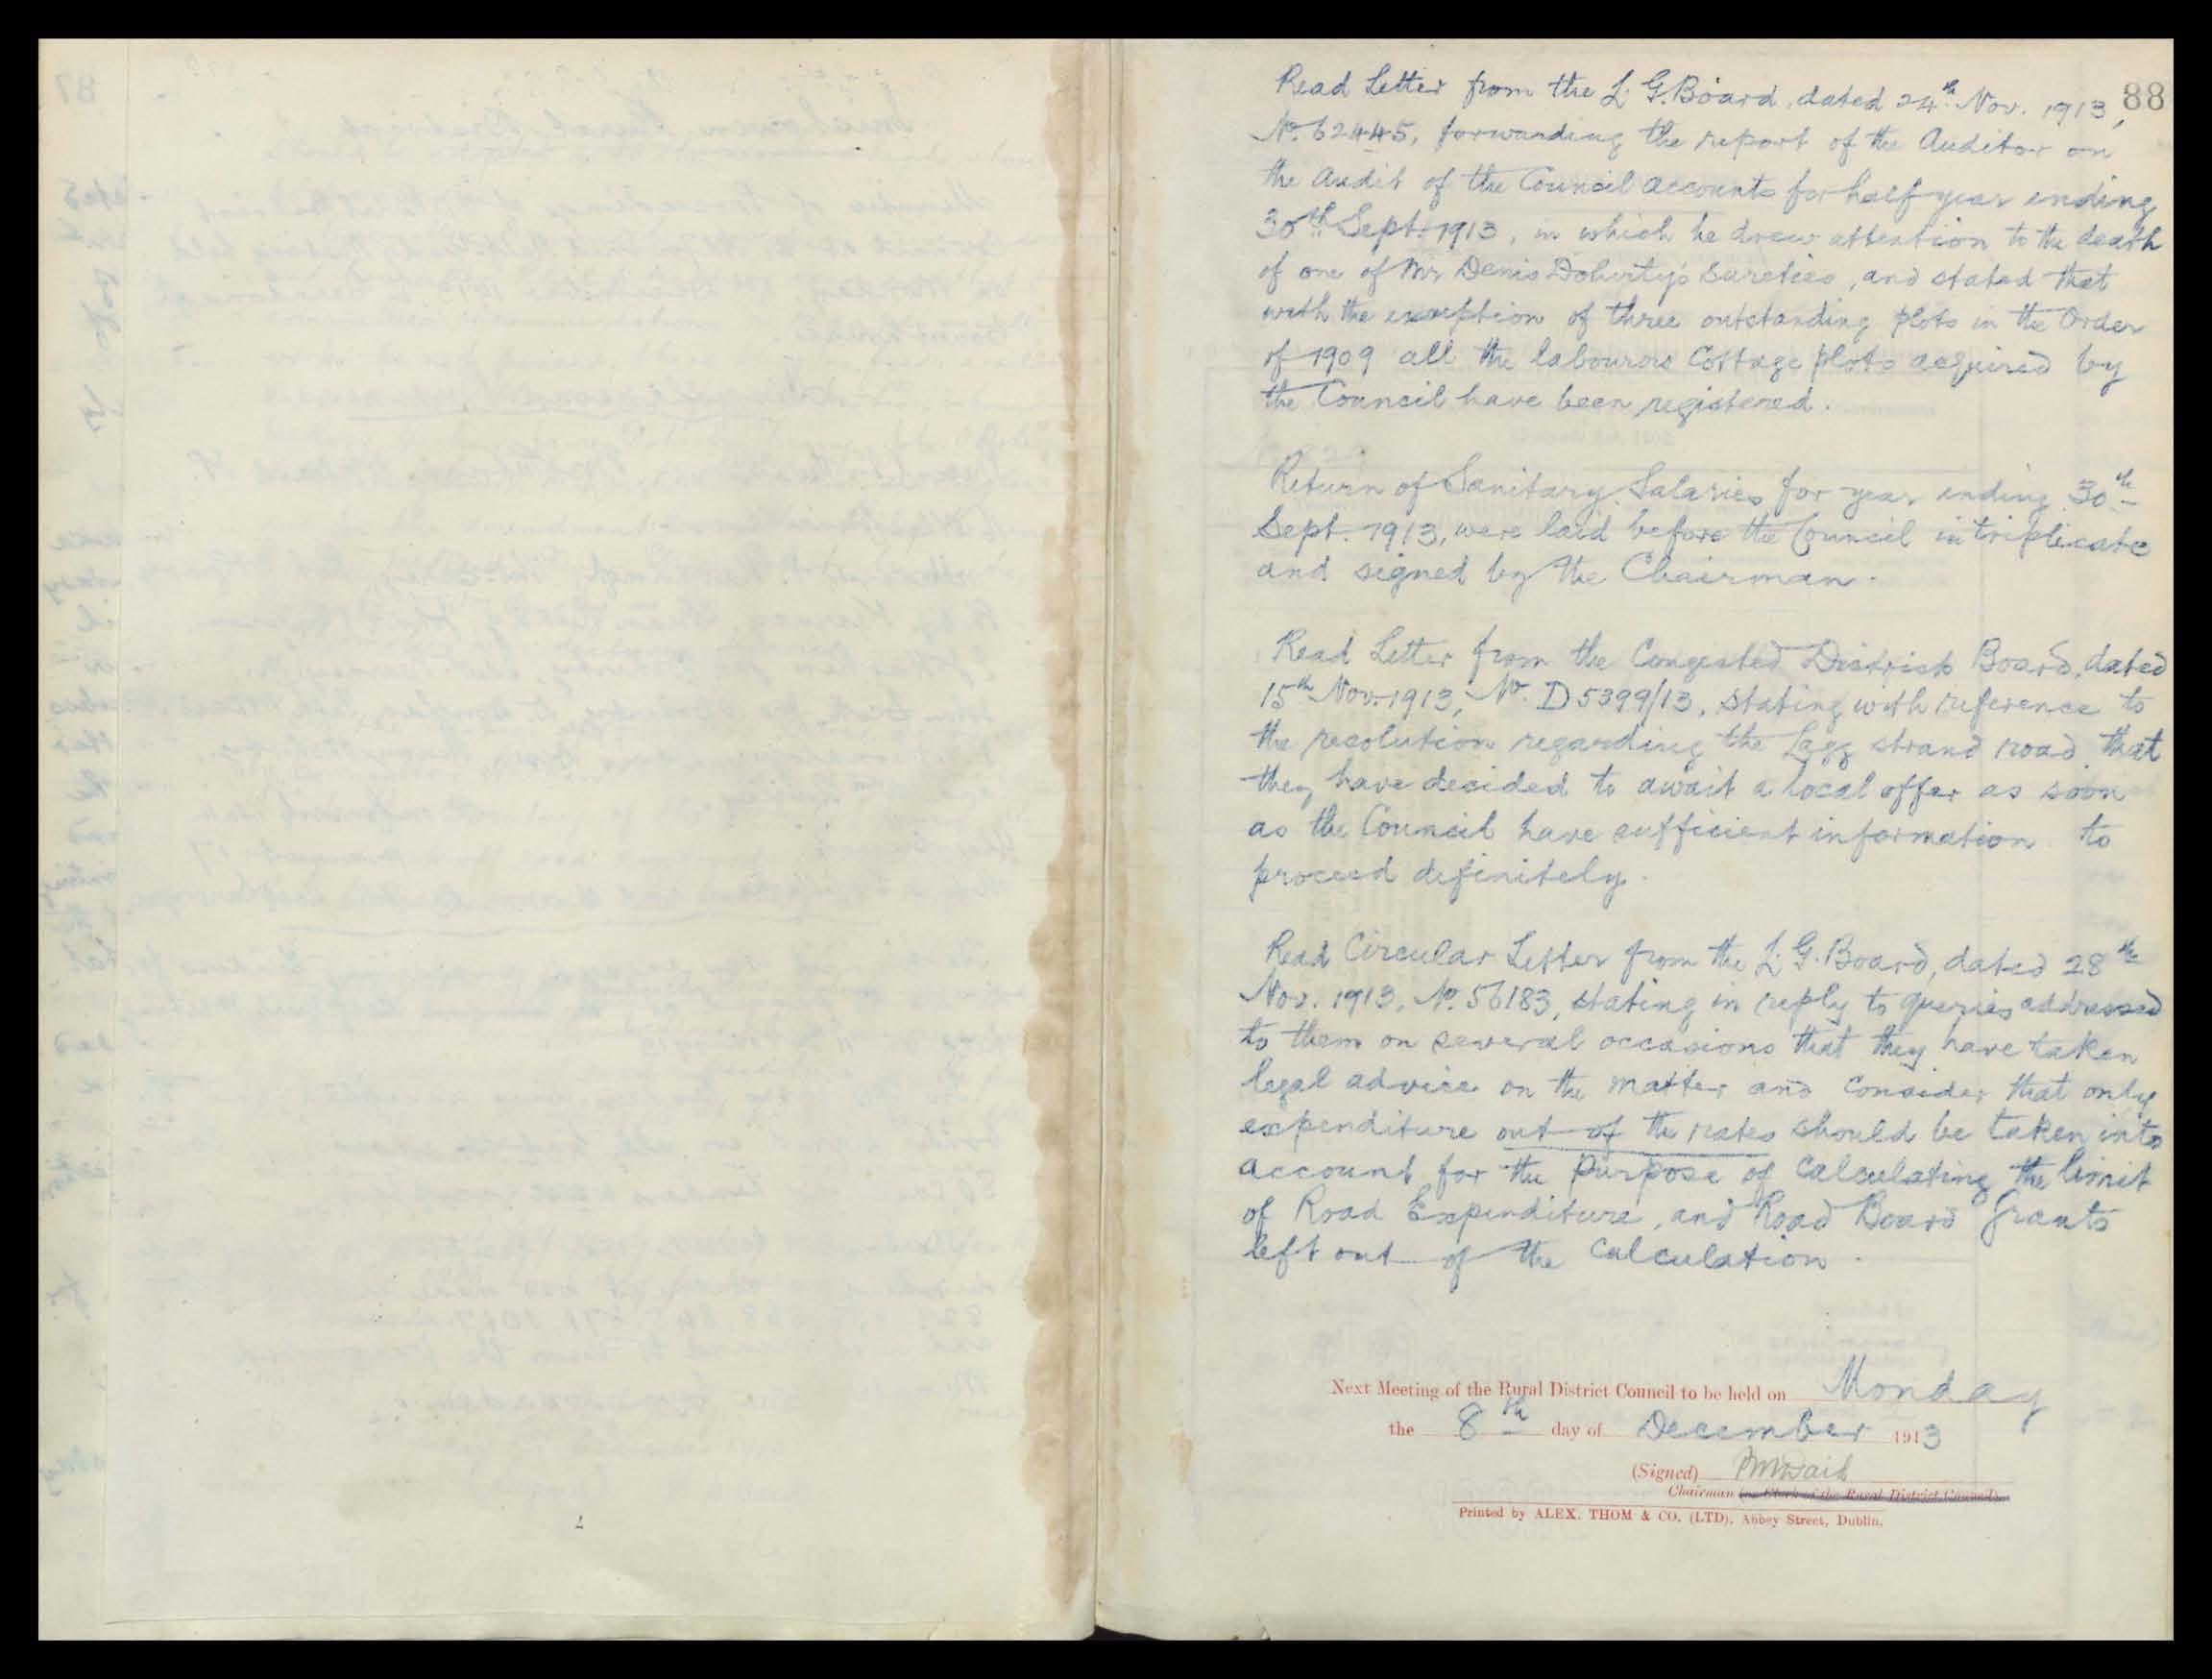 88
Read Letter from the L. G. Board, dated 24th Nov. 1913,
No. 62445, forwarding the report of the Auditor on
the Audit of the Council accounts for half year ending
30th Sept. 1913, in which he drew attention to the death
of one of Mr Denis Doherty's Sureties, and stated that
with the exception of three outstanding plots in the Order
of 1909 all the labourers Cottage plots acquired by
the Council have been registered.
Return of Sanitary Salaries for year ending 30th
Sept. 1913, were laid before the Council in triplicate
and signed by the Chairman.
Read Letter from the Congested Districts Board, dated
15th Nov. 1913, No. D5399/13, stating with reference to
the resolution regarding the Lagg strand road that
they have decided to await a local offer as soon
as the Council have sufficient information to
proceed definitely.
Read Circular Letter from the L. G. Board, dated 28th
Nov. 1913, No. 56183, stating in reply to queries addressed
to them on several occasions that they have taken
legal advice on the matter and consider that only
expenditure out of the rates should be taken into
account for the purpose of Calculating the limit
of Road Expenditure, and Road Board Grants
left out of the Calculation.
Next Meeting of the Rural District Council to be held on Monday
the 8th day of December 1913
(Signed)
Chairman (or Clerk of the Rural District Council).
Printed by ALEX. THOM & CO. (LTD), Abbey Street, Dublin.